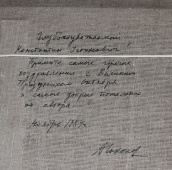 Глубокоуважаемый
Константин Устинович!
Примите самые горячие
поздравления с Великим
Праздником Октября
и самые добрые пожелания
от автора
Ноябрь